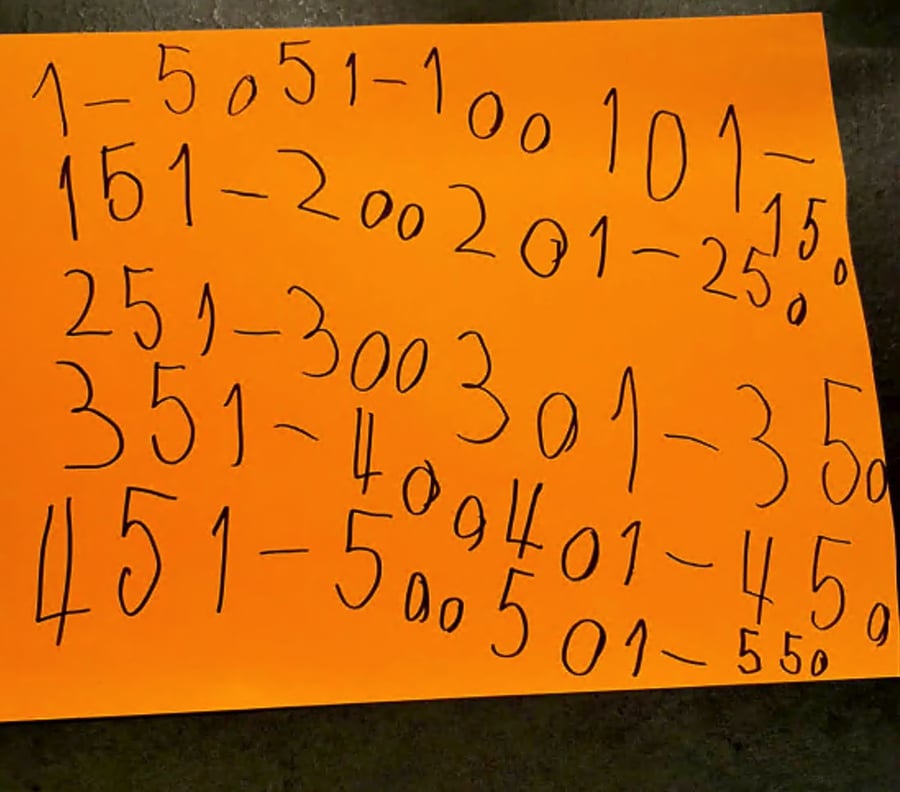 1-50 51-100 101-150
151-200 201-250
251-300 301-350
351-400 401-450
451-500 501-550